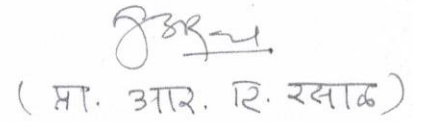 ( प्रा. आर. टि. रसाळ )